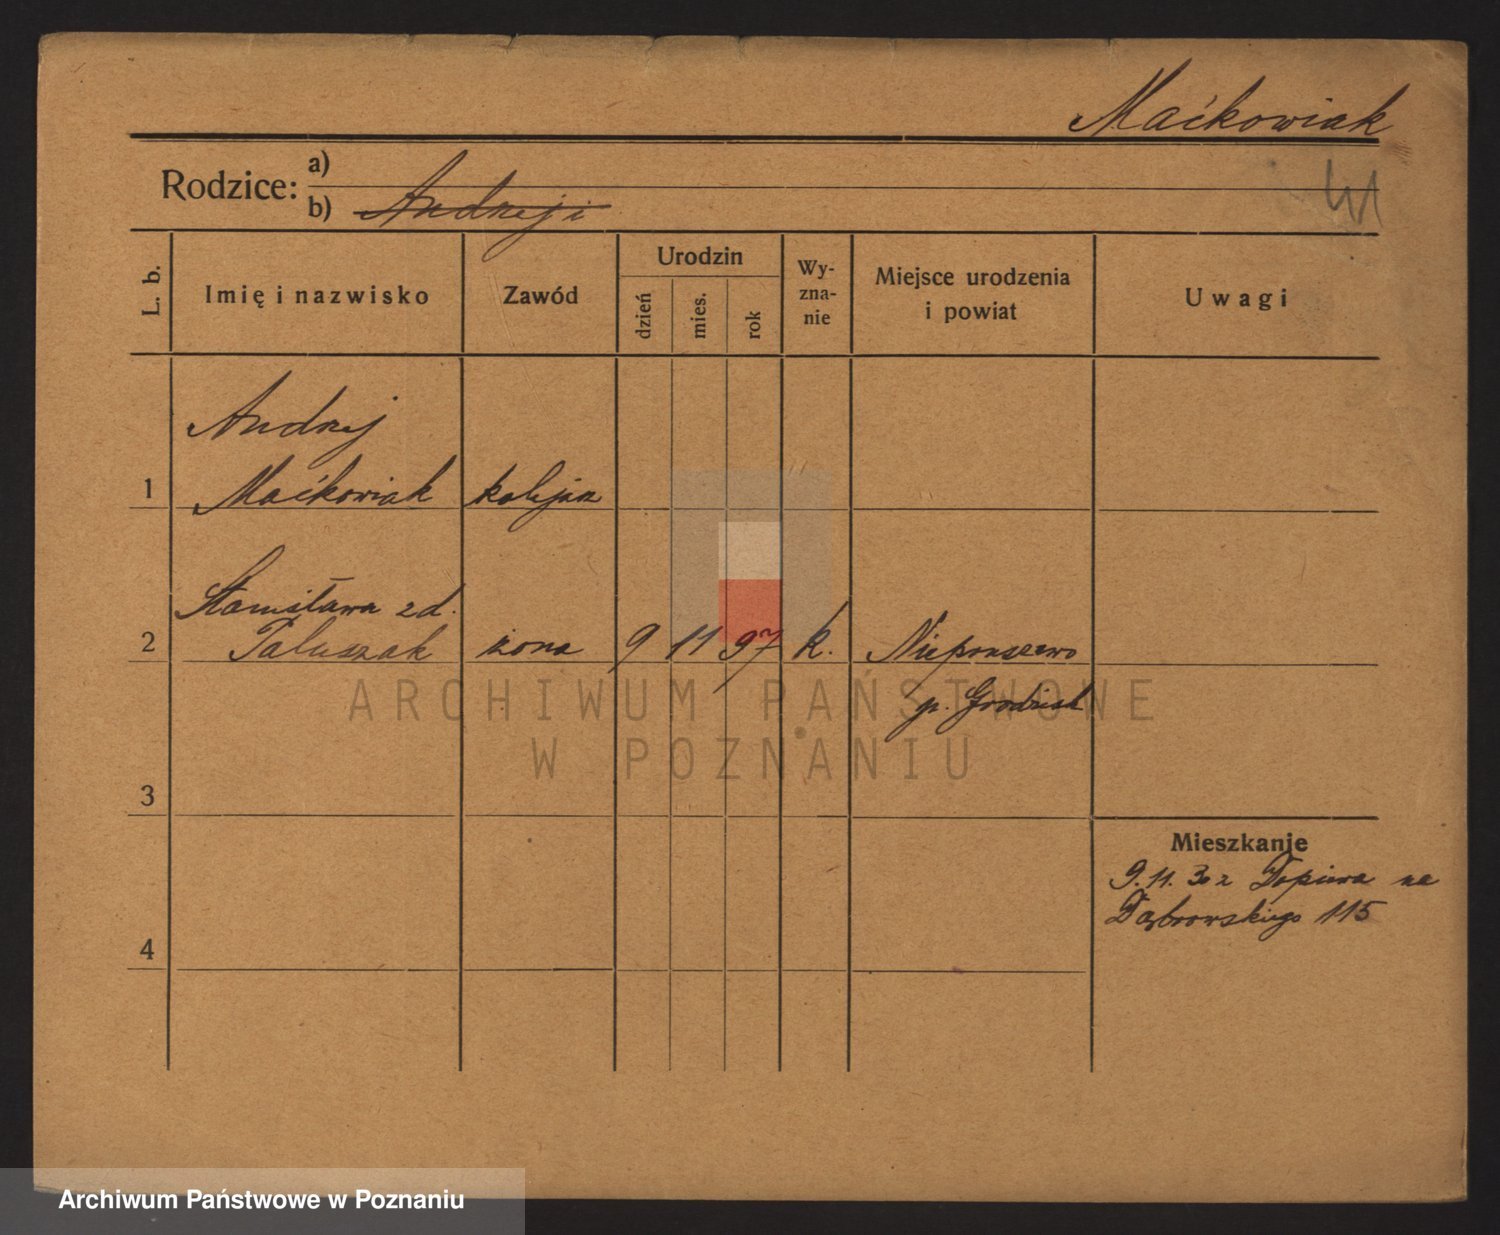 Maćkowiak
Rodzice: a)
b) Andrzej i
L. b.
Imię i nazwisko
Zawód
Urodzin
dzień
mies.
rok
Wy-
zna-
nie
Miejsce urodzenia
i powiat
Uwagi
Andrzej
1 Maćkowiak kolejarz
Stanisława z d.
2 Paluszak żona 9 11 97 k. Niepruszewo
p. Grodzisk
ARCHIWUM PAŃSTWOWE
W POZNANIU
3
Mieszkanie
9.11.30 z Dopiewa na
Dąbrowskiego 115
4
Archiwum Państwowe w Poznaniu